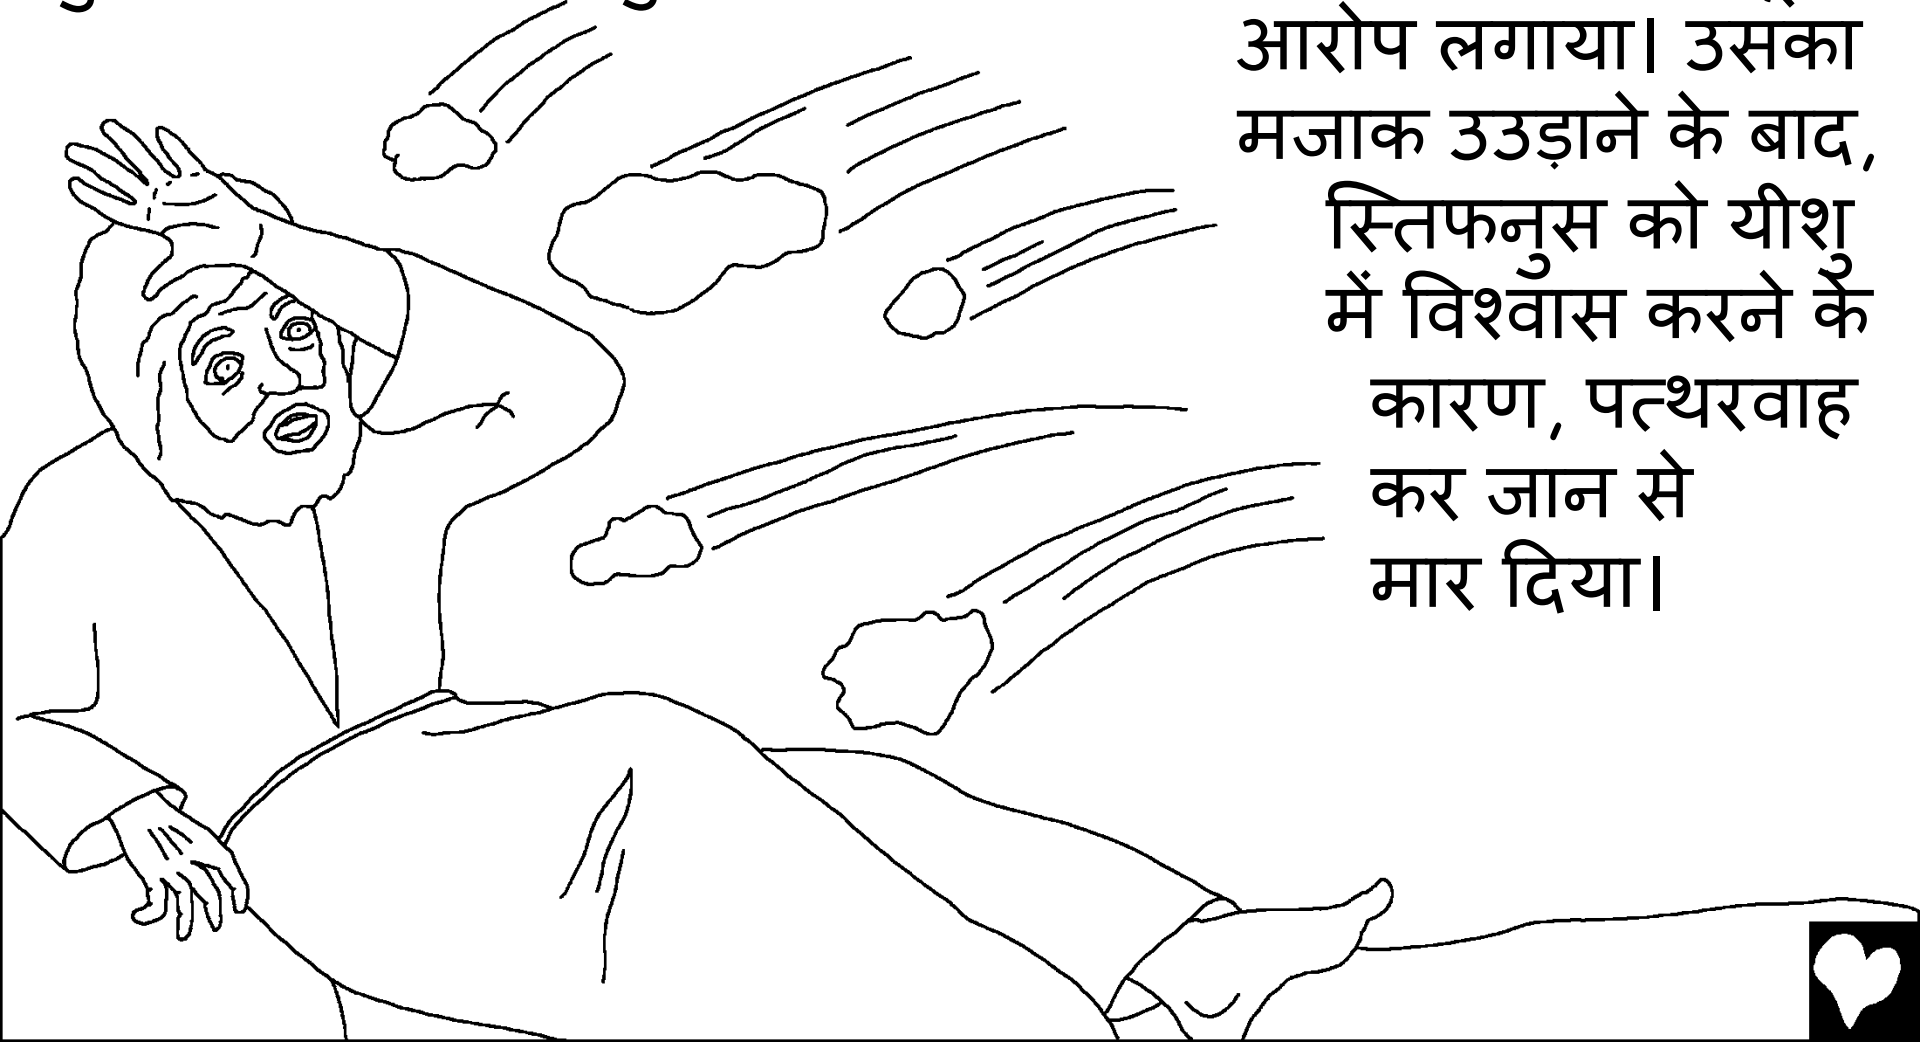 आरोप लगाया। उसका
मजाक उउड़ाने के बाद,
स्तिफनुस को यीशु
में विश्वास करने के
कारण, पत्थरवाह
कर जान से
मार दिया।